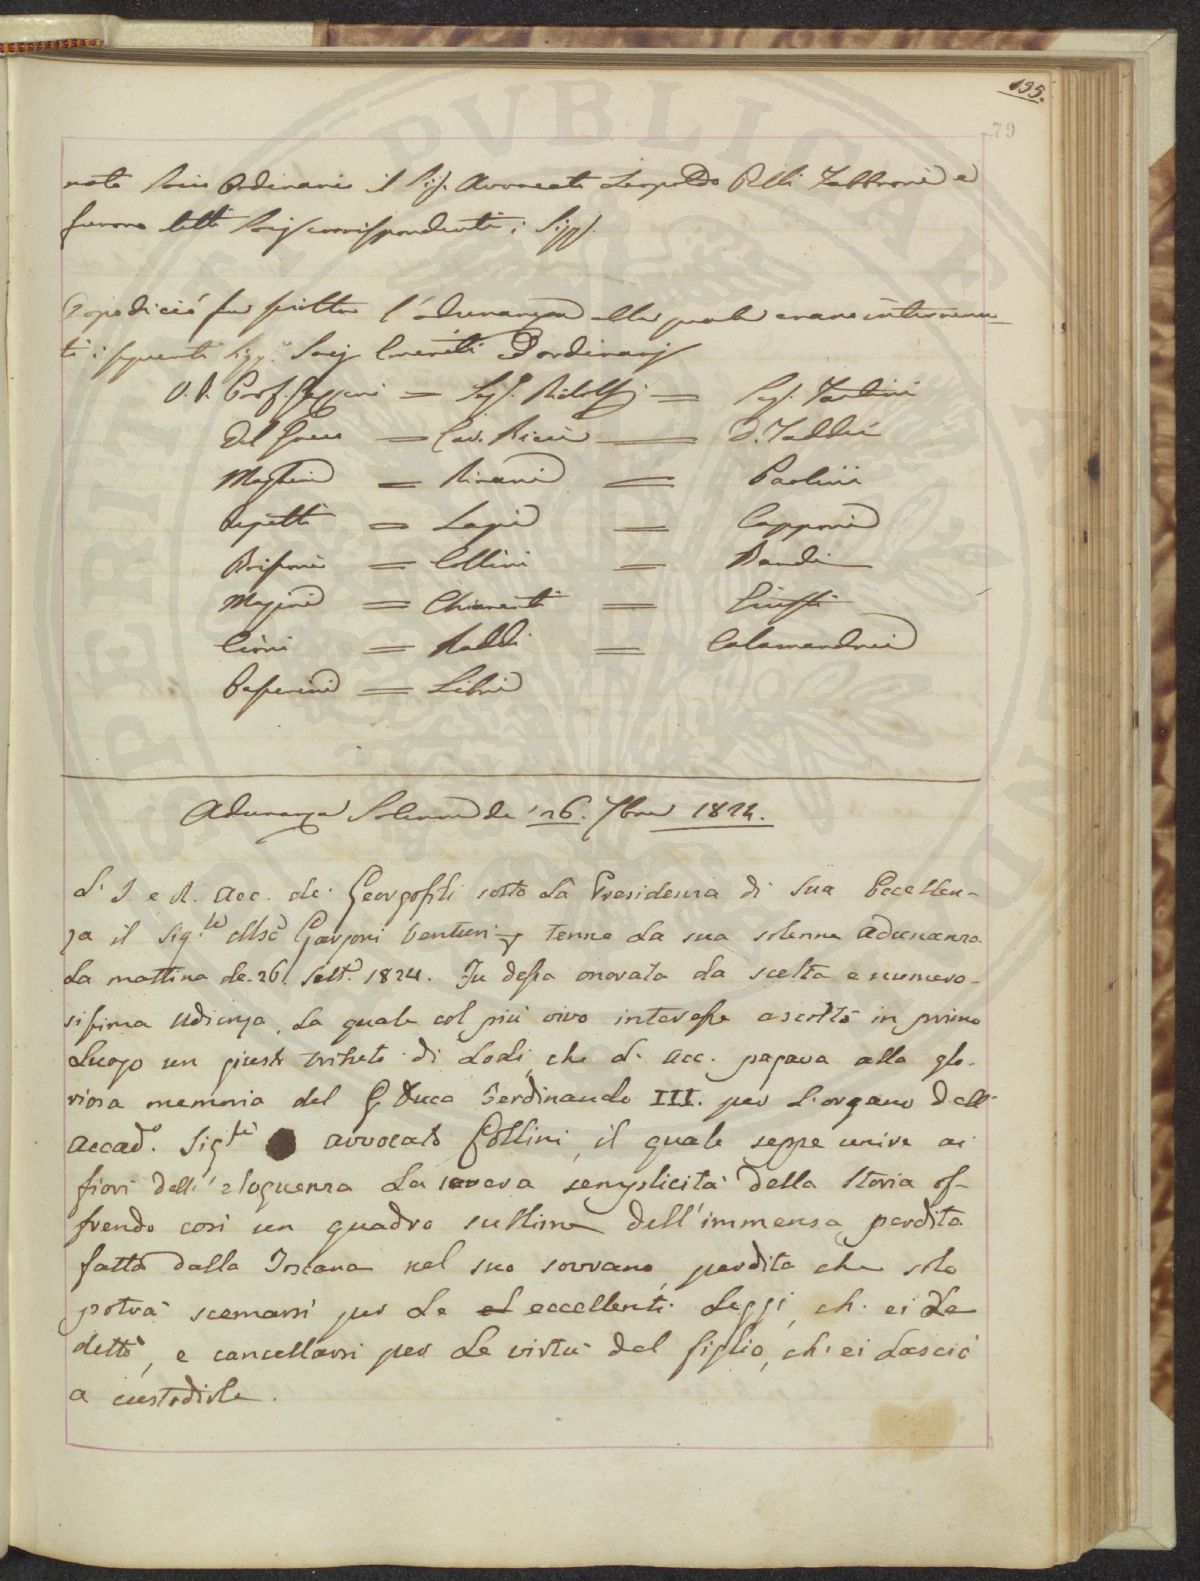 195.
79
nato Socio Ordinario il Sig. Avvocato Leopoldo Pelli Fabbroni e
furono letti Socj corrispondenti i Sigg.
Dopodiciò fu sciolta l'adunanza alla quale erano intervenu-
ti i seguenti Sigg.ri Socj Emeriti ed ordinarj
V. P. Prof. Gazzeri = Seg. Ridolfi = Seg. Tartini
Del Greco = Cav. Ricci = D. Taddei
Magheri = Rivani = Paolini
Repetti = Lapi = Capponi
Brisoni = Collini = Bandi
Magini = Chiarenti = Giusti
Cioni = Raddi = Calamandrei
Passerini = Libri
Adunanza Solenne de' 26. 7bre 1824.
L' I. e R. Acc. de' Georgofili sotto la Presidenza di Sua Eccellen-
za il Sig.re Mse Garzoni Venturi tenne la sua solenne adunanza
la mattina de' 26. Sett.e 1824. Fu dessa onorata da scelta e numero-
sissima Udienza, la quale col più vivo interesse ascoltò in primo
luogo un giusto tributo di lodi, che l' Acc. pagava alla glo-
riosa memoria del G. Duca Ferdinando III. per l'organo dell'
Accad.o Sig.re avvocato Collini, il quale seppe unire ai
fiori dell' eloquenza la severa semplicità della Storia of-
frendo così un quadro sublime dell'immensa perdita
fatta dalla Toscana nel suo sovrano, perdita che solo
potrà scemarsi per le eccellenti Leggi, ch' ei le
dettò, e cancellarsi per le virtù del figlio, ch' ei lasciò
a custodirle.
PVBLICAE